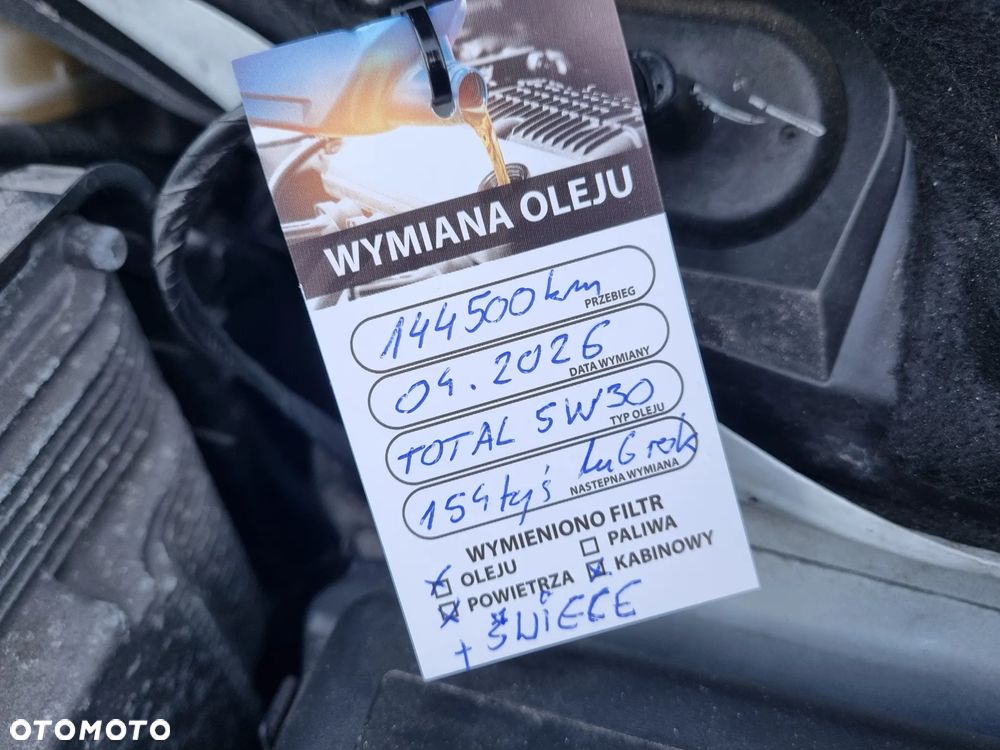 WYMIANA OLEJU
144500 km
PRZEBIEG
04.2026
DATA WYMIANY
TOTAL 5W30
TYP OLEJU
154 tyś lub rok
NASTEPNA WYMIANA
WYMIENIONO FILTR
OLEJU
PALIWA
POWIETRZA
KABINOWY
+ ŚWIECE
OTOMOTO